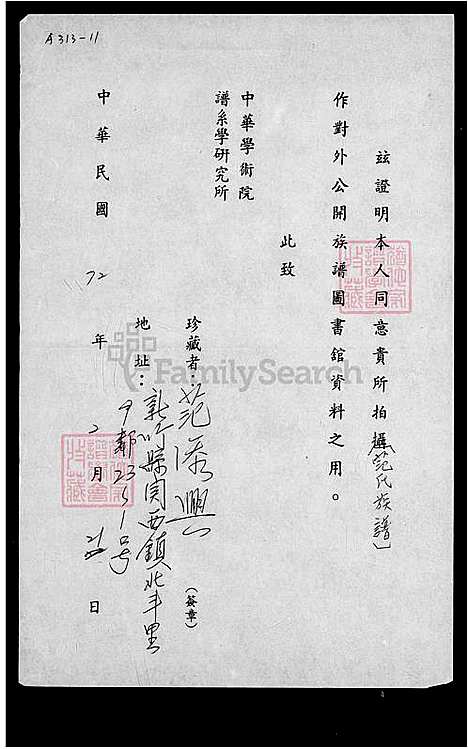 A313-11
茲證明本人同意貴所拍攝「范氏族譜」
作對外公開族譜圖書舘資料之用。
此致
中華學術院
譜系學研究所
珍藏者：范添興（簽章）
地址：新竹縣關西鎮北斗里
9鄰23之1号
中華民國72年2月日
FamilySearch